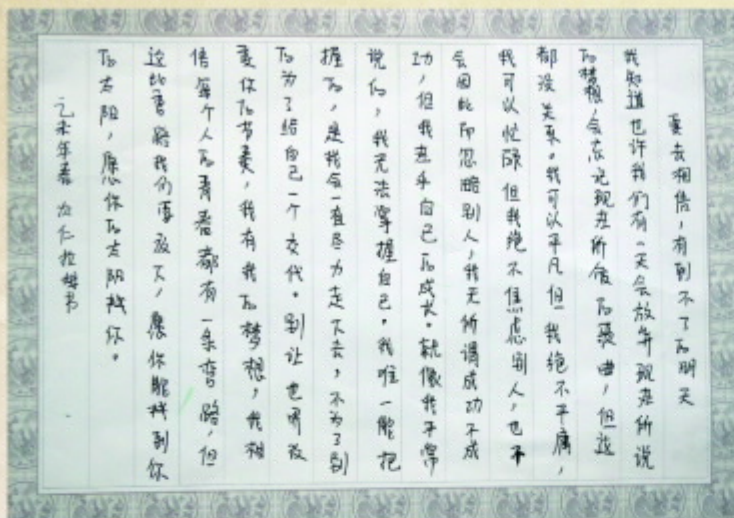 要去相信，有到不了的明天
我知道也许我们有一天会放弃现在所说
的梦想，会忘记现在所做的，但这
都没关系。我可以平凡但我绝不平庸，
我可以忙碌但我绝不焦虑别人，也不
会因此而忽略别人，我无所谓成功不成
功，但我在乎自己的成长。就像我平常
说的，我无法掌握自己。我唯一能把
握的，是我会一直尽力走下去，不为了别
的为了给自己一个交代。别让世界改
变你的，我有我的梦想，我相
信每个人的青春都有一条弯路，但
这些弯路我们要放下，愿你能找到你
的太阳，愿你的太阳找你。
乙未年春 次仁拉姆书